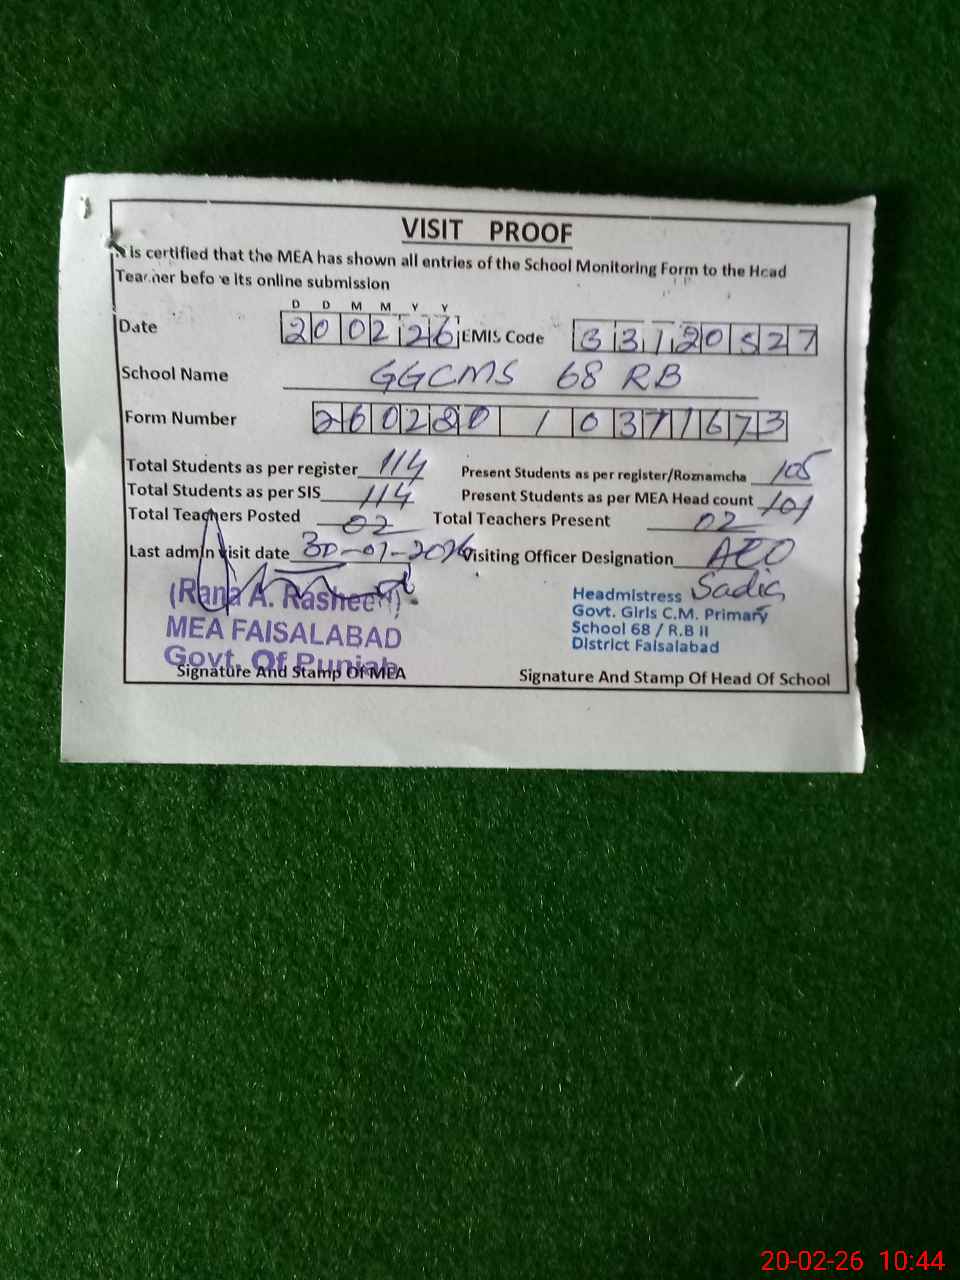 VISIT PROOF
It is certified that the MEA has shown all entries of the School Monitoring Form to the Head
Teacher before its online submission
D D M M Y Y
Date 20 02 26 EMIS Code 33120527
School Name GGCMS 68 RB
Form Number 260220 1 0371673
Total Students as per register 114 Present Students as per register/Roznamcha 105
Total Students as per SIS 114 Present Students as per MEA Head count 101
Total Teachers Posted 02 Total Teachers Present 02
Last admin visit date 30-01-2026 Visiting Officer Designation AEO
(Rana A. Rasheed)
MEA FAISALABAD
Govt. Of Punjab
Signature And Stamp Of MEA
Sadia
Headmistress
Govt. Girls C.M. Primary
School 68 / R.B II
District Faisalabad
Signature And Stamp Of Head Of School
20-02-26 10:44